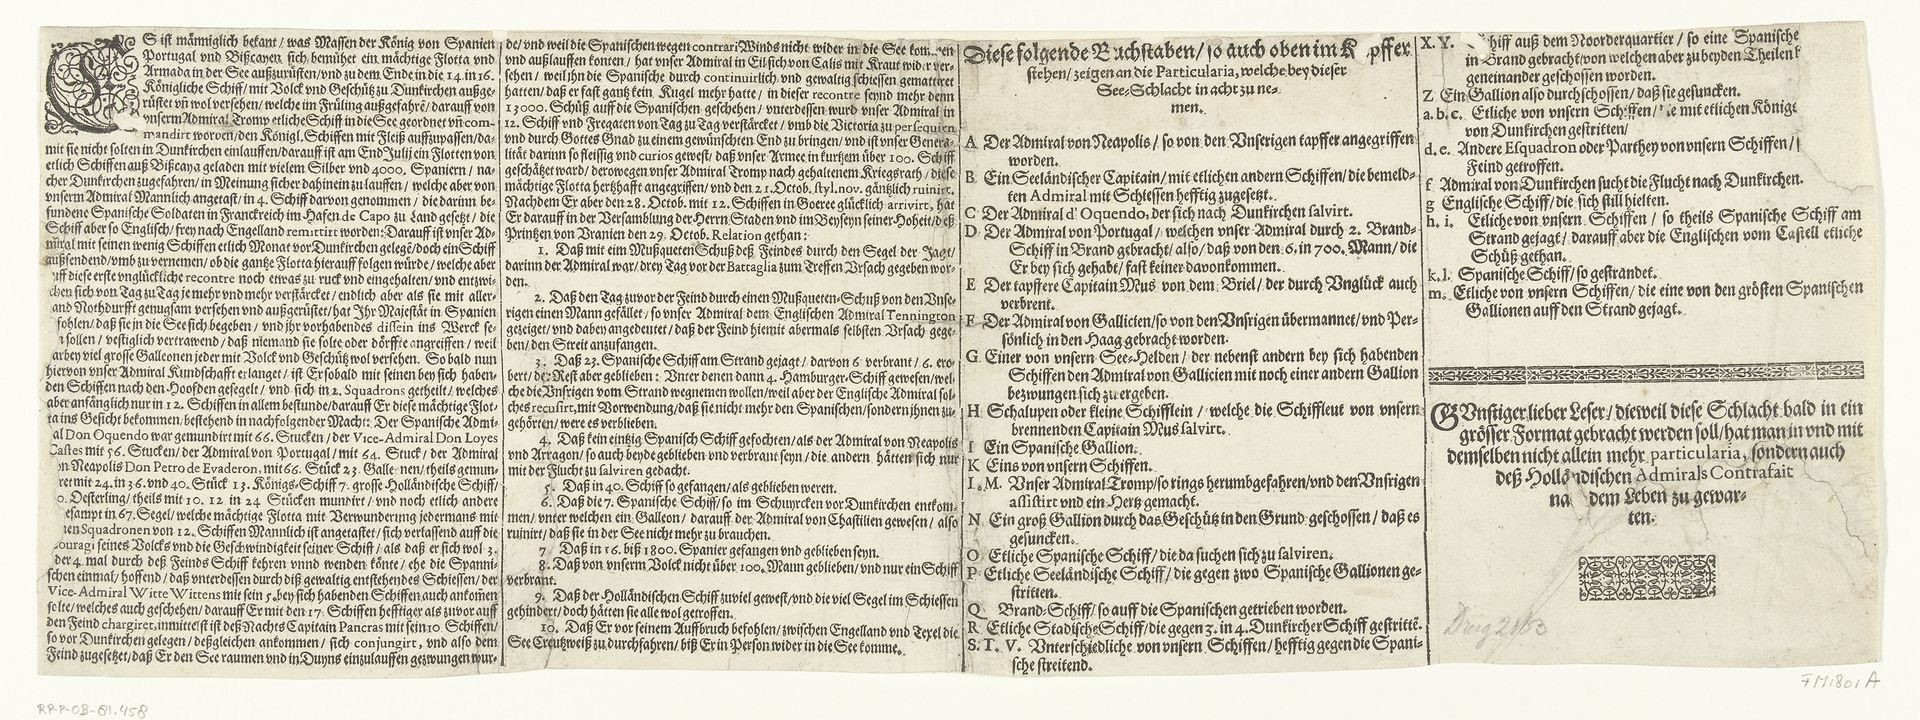 ES ist männiglich bekant / was Massen der König von Spanien
Portugal vnd Bißcayen sich bemühet ein mächtige Flotta vnd
Armada in der See außzurüsten / vnd zu dem Ende in die 14. in 16.
Königliche Schiff / mit Volck vnd Geschütz zu Dunkirchen außge-
rüstet vñ wol versehen / welche im Früling außgefahrẽ / darauff von
vnserm Admiral Tromp etliche Schiff in die See geordnet vñ com-
mandirt worden / den Königl. Schiffen mit Fleiß auffzupassen / da-
mit sie nicht solten in Dunkirchen einlauffen / darauff ist am End Julij ein Flotten von
etlich Schiffen auß Bißcaya geladen mit vielem Silber vnd 4000. Spaniern / na-
cher Dunkirchen zugefahren / in Meinung sicher dahinein zu lauffen / welche aber von
vnserm Admiral Mannlich angetast / in 4. Schiff darvon genommen / die darinn be-
fundene Spanische Soldaten in Franckreich im Hafen de Capo zu Land gesetzt / die
Schiff aber so Englisch / frey nach Engelland remittirt worden: Darauff ist vnser Ad-
miral mit seinen wenig Schiffen etlich Monat vor Dunkirchen gelegẽ / doch ein Schiff
außsendend / vmb zu vernemen / ob die gantze Flotta hierauff folgen würde / welche aber
uff diese erste vnglückliche recontre noch etwas zu ruck vnd eingehalten / vnd entzwi-
chen sich von Tag zu Tag je mehr vnd mehr verstärcket / endlich aber als sie mit aller-
hand Nothdurfft genugsam versehen vnd außgerüstet / hat Ihr Majestät in Spanien
fohlen / daß sie in die See sich begeben / vnd jhr vorhabendes dissein ins Werck se-
n sollen / vestiglich vertrawend / daß niemand sie solte oder dörffte angreiffen / weil
arbey viel grosse Galleonen jeder mit Volck vnd Geschütz wol versehen. So bald nun
hiervon vnser Admiral Kundschafft erlanget / ist Er sobald mit seinen bey sich haben-
den Schiffen nach den Hoofden gesegelt / vnd sich in 2. Squadrons getheilt / welches
aber anfänglich nur in 12. Schiffen in allem bestunde / darauff Er diese mächtige Flot-
ta ins Gesicht bekommen / bestehend in nachfolgender Macht: Der Spanische Admi-
al Don Oquendo war gemundirt mit 66. Stucken / der Vice-Admiral Don Loyes
Castes mit 56. Stucken / der Admiral von Portugal / mit 64. Stuck / der Admiral
n Neapolis Don Petro de Evaderon, mit 66. Stück 23. Galleonen / theils gemun-
ret mit 24. in 36. vnd 40. Stück 13. Königs-Schiff 7. grosse Holländische Schiff /
0. Oesterling / theils mit 10. 12 in 24 Stücken mundirt / vnd noch etlich andere
esampt in 67. Segel / welche mächtige Flotta mit Verwunderung jedermans mit
ien Squadronen von 12. Schiffen Mannlich ist angetastet / sich verlassend auff die
couragi seines Volcks vnd die Geschwindigkeit seiner Schiff / als daß er sich wol 3.
der 4. mal durch deß Feinds Schiff kehren vnnd wenden könte / ehe die Spanni-
schen einmal / hoffend / daß vnterdessen durch diß gewaltig entstehendes Schiessen / der
Vice-Admiral Witte Wittens mit sein 5. bey sich habenden Schiffen auch ankom̃en
solte / welches auch geschehen / darauff Er mit den 17. Schiffen hefftiger als zuvor auff
den Feind chargiret, inmittelst ist deß Nachts Capitain Pancras mit sein 10. Schiffen /
so vor Dunkirchen gelegen / deßgleichen ankommen / sich conjungirt, vnd also dem
Feind zugesetzet / daß Er den See raumen vnd in Duyns einzulauffen gezwungen wur-
de / vnd weil die Spanischen wegen contrari Winds nicht wider in die See kommen
vnd außlauffen konten / hat vnser Admiral in Eil sich von Calis mit Kraut wider ver-
sehen / weil jhn die Spanische durch continuirlich vnd gewaltig schiessen gemattiret
hatten / daß er fast gantz kein Kugel mehr hatte / in dieser recontre seynd mehr denn
13000. Schüß auff die Spanischen geschehen / vnterdessen wurd vnser Admiral in
12. Schiff vnd Fregaten von Tag zu Tag verstärcket / vmb die Victoria zu persequien
vnd durch Gottes Gnad zu einem gewünschten End zu bringen / vnd ist vnser Genera-
litât darinn so fleissig vnd curios gewest / daß vnser Armee in kurtzem über 100. Schiff
geschätzet ward / derowegen vnser Admiral Tromp nach gehaltenem Kriegsrath / diese
mächtige Flotta hertzhafft angegriffen / vnd den 21. Octob. styl. nov. gäntzlich ruinirt.
Nachdem Er aber den 28. Octob. mit 12. Schiffen in Goeree glücklich arrivirt, hat
Er darauff in der Versamblung der Herrn Staden vnd im Beysein seiner Hoheit / deß
Printzen von Vranien den 29. Octob. Relation gethan:
1. Daß mit eim Mußqueten Schuß deß Feindes durch den Segel der Jagt /
darinn der Admiral war / drey Tag vor der Battaglia zum Treffen Vrsach gegeben wor-
den.
2. Daß den Tag zuvor der Feind durch einen Mußqueten-Schuß von den Vnse-
rigen einen Mann gefället / so vnser Admiral dem Englischen Admiral Tennington
gezeiget / vnd dabey angedeutet / daß der Feind hiemit abermals selbsten Vrsach gege-
ben / den Streit anzufangen.
3. Daß 23. Spanische Schiff am Strand gejagt / darvon 6 verbrant / 6. ero-
bert / der Rest aber geblieben: Vnter denen dann 4. Hamburger-Schiff gewesen / wel-
che die Vnsrigen vom Strand wegnemen wollen / weil aber der Englische Admiral sol-
ches recusirt, mit Vorwendung / daß sie nicht mehr den Spanischen / sondern jhnen zu-
gehörten / were es verblieben.
4. Daß kein eintzig Spanisch Schiff gefochten / als der Admiral von Neapolis
vnd Arragon / so auch beyde geblieben vnd verbrant seyn / die andern hätten sich nur
mit der Flucht zu salviren gedacht.
5. Daß in 40. Schiff so gefangen / als geblieben weren.
6. Daß die 7. Spanische Schiff / so im Schuyrcken vor Dunkirchen entkom-
men / vnter welchen ein Galleon / darauff der Admiral von Chastilien gewesen / also
ruinirt / daß sie in der See nicht mehr zu brauchen.
7 Daß in 16. biß 1800. Spanier gefangen vnd geblieben seyn.
8. Daß von vnserm Volck nicht über 100. Mann geblieben / vnd nur ein Schiff
verbrant.
9. Daß der Holländischen Schiff zuviel gewest / vnd die viel Segel im Schiessen
gehindert / doch hätten sie alle wol getroffen.
10. Daß Er vor seinem Auffbruch befohlen / zwischen Engelland vnd Texel die
See Creutzweiß zu durchfahren / biß Er in Person wider in die See komme.
Diese folgende Buchstaben / so auch oben im K pffer
stehen / zeigen an die Particularia, welche bey dieser
See-Schlacht in acht zu ne-
men.
A Der Admiral von Neapolis / so von den Vnserigen tapffer angegriffen
worden.
B Ein Seeländischer Capitain / mit etlichen andern Schiffen / die bemeld-
ten Admiral mit Schiessen hefftig zugesetzt.
C Der Admiral d'Oquendo, der sich nach Dunkirchen salvirt.
D Der Admiral von Portugal / welchen vnser Admiral durch 2. Brand-
Schiff in Brand gebracht / also / daß von den 6. in 700. Mann / die
Er bey sich gehabt / fast keiner davonkommen.
E Der tapffere Capitain Mus von dem Briel / der durch Vnglück auch
verbrent.
F Der Admiral von Gallicien / so von den Vnsrigen übermannet / vnd Per-
sönlich in den Haag gebracht worden.
G Einer von vnsern See-Helden / der nebenst andern bey sich habenden
Schiffen den Admiral von Gallicien mit noch einer andern Gallion
bezwungen sich zu ergeben.
H Schalupen oder kleine Schifflein / welche die Schiffleut von vnserm
brennenden Capitain Mus salvirt.
I Ein Spanische Gallion.
K Eins von vnsern Schiffen.
L. M. Vnser Admiral Tromp / so rings herumb gefahren / vnd den Vnsrigen
assistirt vnd ein Hertz gemacht.
N Ein groß Gallion durch das Geschütz in den Grund geschossen / daß es
gesuncken.
O Etliche Spanische Schiff / die da suchen sich zu salviren.
P Etliche Seeländische Schiff / die gegen zwo Spanische Gallionen ge-
stritten.
Q Brand-Schiff / so auff die Spanischen getrieben worden.
R Etliche Stadische Schiff / die gegen 3. in 4. Dunkircher Schiff gestrittẽ.
S. T. V. Vnterschiedliche von vnsern Schiffen / hefftig gegen die Spani-
sche streitend.
X. Y. Schiff auß dem Noorderquartier / so eine Spanische
in Brand gebracht / von welchen aber zu beyden Theilen
geneinander geschossen worden.
Z Ein Gallion also durchschossen / daß sie gesuncken.
a. b. c. Etliche von vnsern Schiffen / die mit etlichen Königs
von Dunkirchen gestritten /
d. e. Andere Esquadron oder Parthey von vnsern Schiffen /
Feind getroffen.
f Admiral von Dunkirchen sucht die Flucht nach Dunkirchen.
g Englische Schiff / die sich still hielten.
h. i. Etliche von vnsern Schiffen / so theils Spanische Schiff am
Strand gejagt / darauff aber die Englischen vom Castell etliche
Schüß gethan.
k. l. Spanische Schiff / so gestrandet.
m. Etliche von vnsern Schiffen / die eine von den grösten Spanischen
Gallionen auff den Strand gejagt.
GVnstiger lieber Leser / dieweil diese Schlacht bald in ein
grösser Format gebracht werden soll / hat man in vnd mit
demselben nicht allein mehr particularia, sondern auch
deß Holländischen Admirals Contrafait
na dem Leben zu gewar-
ten.
FM 1801 A
RP-P-OB-81.458